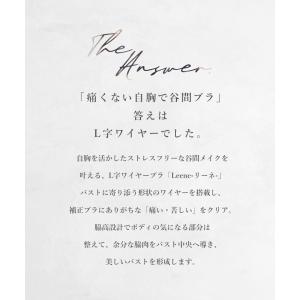 The
Answer.
「痛くない自胸で谷間ブラ」
答えは
L字ワイヤーでした。
自胸を活かしたストレスフリーな谷間メイクを
叶える、L字ワイヤーブラ「Leene-リーネ-」
バストに寄り添う形状のワイヤーを搭載し、
補正ブラにありがちな「痛い・苦しい」をクリア。
脇高設計でボディの気になる部分は
整えて、余分な脇肉をバスト中央へ導き、
美しいバストを形成します。